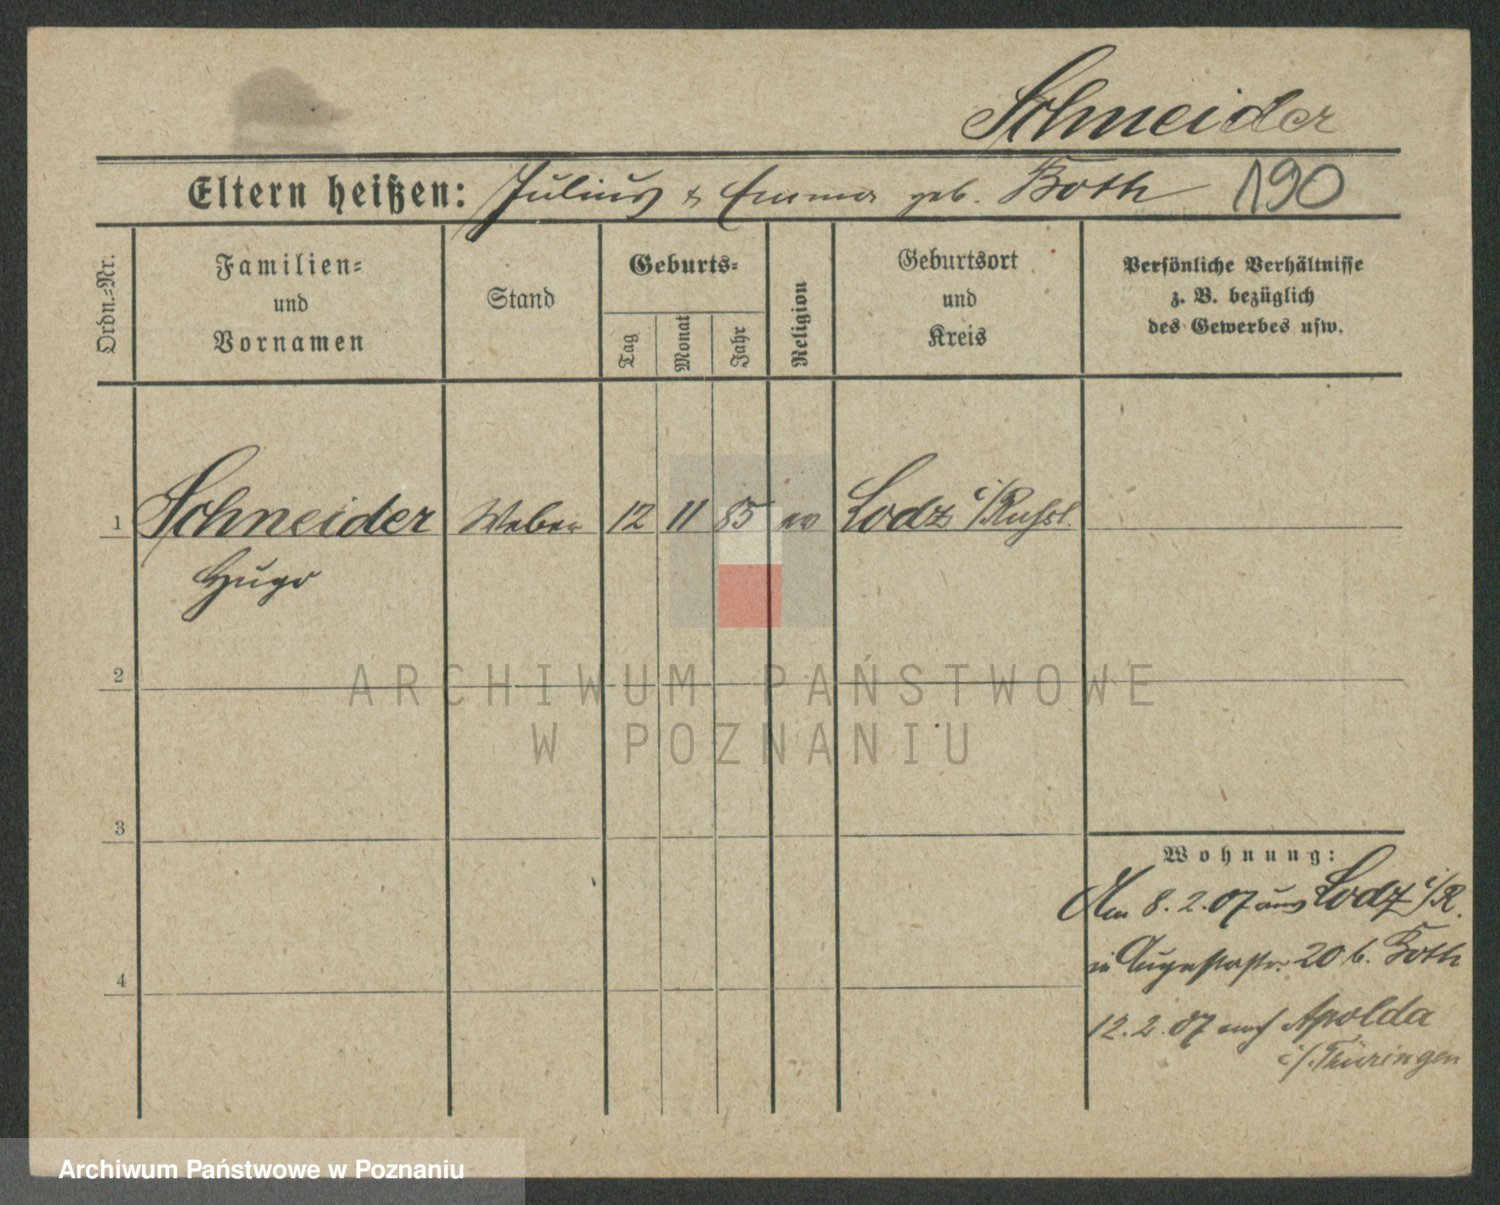 Schneider
Eltern heißen: Julius & Emma geb. Both 190
Ordn.=Nr.
Familien=
und
Vornamen
Stand
Geburts=
Tag
Monat
Jahr
Religion
Geburtsort
und
Kreis
Persönliche Verhältnisse
z. B. bezüglich
des Gewerbes usw.
1 Schneider Weber 12 11 85 ev Lodz i/Russl.
Hugo
2
ARCHIWUM PAŃSTWOWE
W POZNANIU
3
Wohnung:
Am 8.2.07 aus Lodz i/R.
in Augustastr. 20 b. Both
4
12.2.07 nach Apolda
i/Türingen
Archiwum Państwowe w Poznaniu